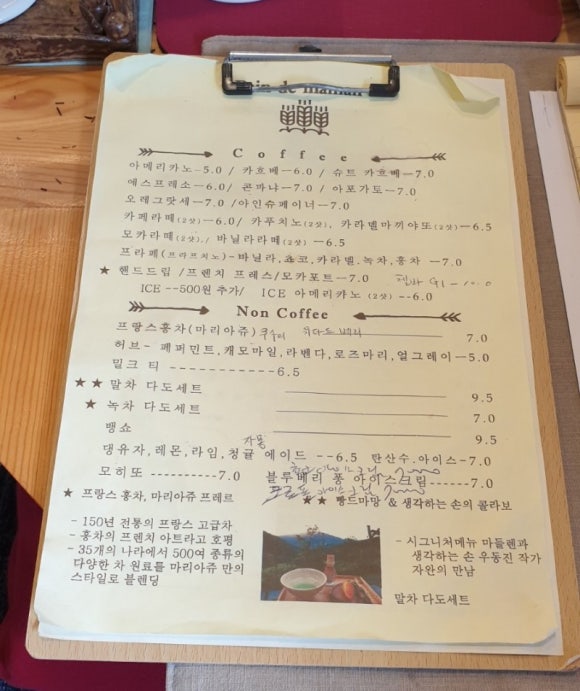 de maman
Coffee
아메리카노-5.0 / 카흐베-6.0 / 슈트 카흐베-7.0
에스프레소-6.0/ 콘파냐-7.0 / 아포가토-7.0
오레그랏세-7.0 /아인슈페이너-7.0
카페라떼(2샷)-6.0/ 카푸치노(2샷), 카라멜마끼야또(2샷)-6.5
모카라떼(2샷)./ 바닐라라떼(2샷) -6.5
프라페(프라프치노)-바닐라,쵸코,카라멜.녹차,홍차 -7.0
★ 핸드드립 /프렌치 프레스/모카포트-7.0
ICE --500원 추가/ ICE 아메리카노 (2샷) --6.0
Non Coffee
프랑스홍차(마리아쥬) 7.0
허브- 페퍼민트,캐모마일,라벤다,로즈마리,얼그레이-5.0
밀크 티 -----------6.5
★★ 말차 다도세트 9.5
★ 녹차 다도세트 7.0
뱅쇼 9.5
자몽
댕유자,레몬,라임,청귤 에이드 --6.5 탄산수.아이스-7.0
모히또 ----------7.0 블루베리 퐁 아이스크림------7.0
★ 프랑스 홍차, 마리아쥬 프레르
★★ 빵드마망 & 생각하는 손의 콜라보
- 150년 전통의 프랑스 고급차
- 홍차의 프렌치 아트라고 호평
- 35개의 나라에서 500여 종류의
다양한 차 원료를 마리아쥬 만의
스타일로 블렌딩
- 시그니처메뉴 마들렌과
생각하는 손 우동진 작가
자완의 만남
말차 다도세트